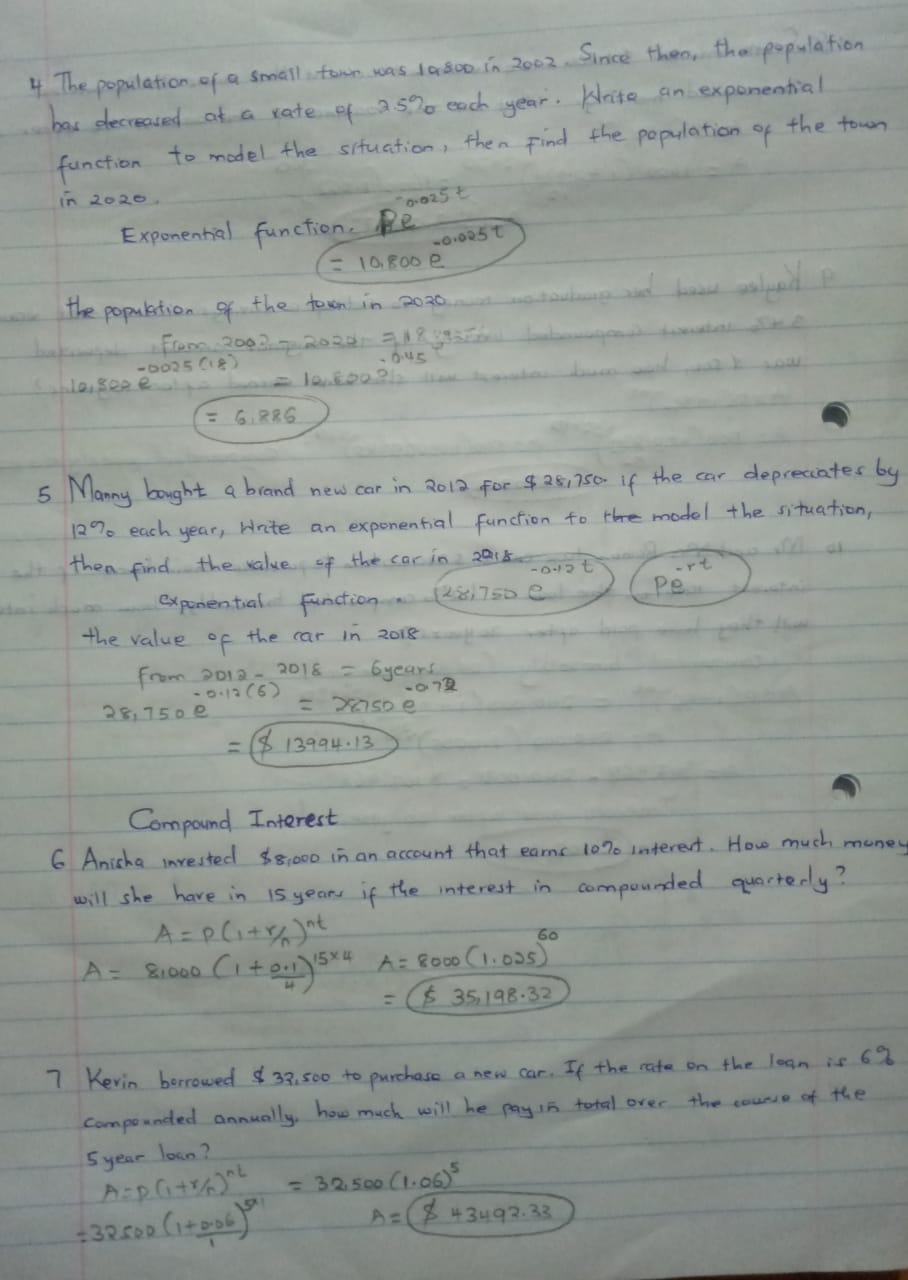 4 The population of a small town was 10,800 in 2002. Since then, the population
has decreased at a rate of 2.5% each year. Write an exponential
function to model the situation, then find the population of the town
in 2020.
Exponential function. Pe^-0.025t
= 10,800 e^-0.025t
the population of the town in 2020
From 2002 - 2020 = 18 years
10,800 e^-0.025(18) = 10,800 e^-0.45
= 6,886
5 Manny bought a brand new car in 2012 for $28,750. if the car depreciates by
12% each year, Write an exponential function to the model the situation,
then find the value of the car in 2018.
exponential function. 28,750 e^-0.12t Pe^-rt
the value of the car in 2018
From 2012 - 2018 = 6years
28,750 e^-0.12(6) = 28750 e^-0.72
= $13994.13
Compound Interest
6 Anisha invested $8,000 in an account that earns 10% interest. How much money
will she have in 15 years if the interest in compounded quarterly?
A = P(1+r/n)^nt
A = 8,000 (1 + 0.1/4)^15×4 A = 8000 (1.025)^60
= $ 35,198.32
7 Kevin borrowed $32,500 to purchase a new car. If the rate on the loan is 6%
compounded annually, how much will he pay in total over the course of the
5 year loan?
A=P(1+r/n)^nt = 32,500 (1.06)^5
=32500 (1+0.06/1)^5 A= $ 43492.33